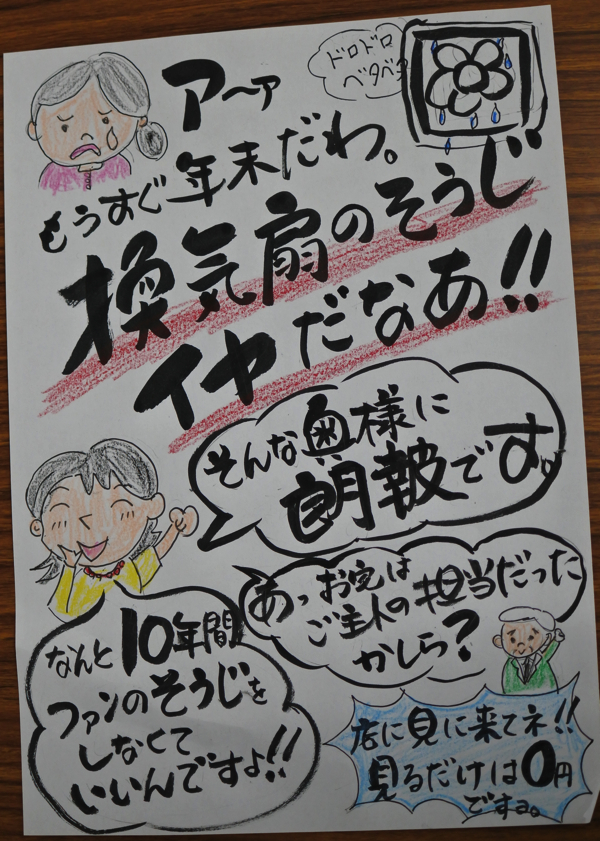 ア〜ァ
ドロドロ
ベタベタ
もうすぐ年末だわ。
換気扇のそうじ
イヤだなあ!!
そんな奥様に
朗報です。
あっお宅は
ご主人の担当だった
かしら?
なんと10年間
ファンのそうじを
しなくて
いいんですよ!!
店に見に来てネ!!
見るだけは0円
ですョ。